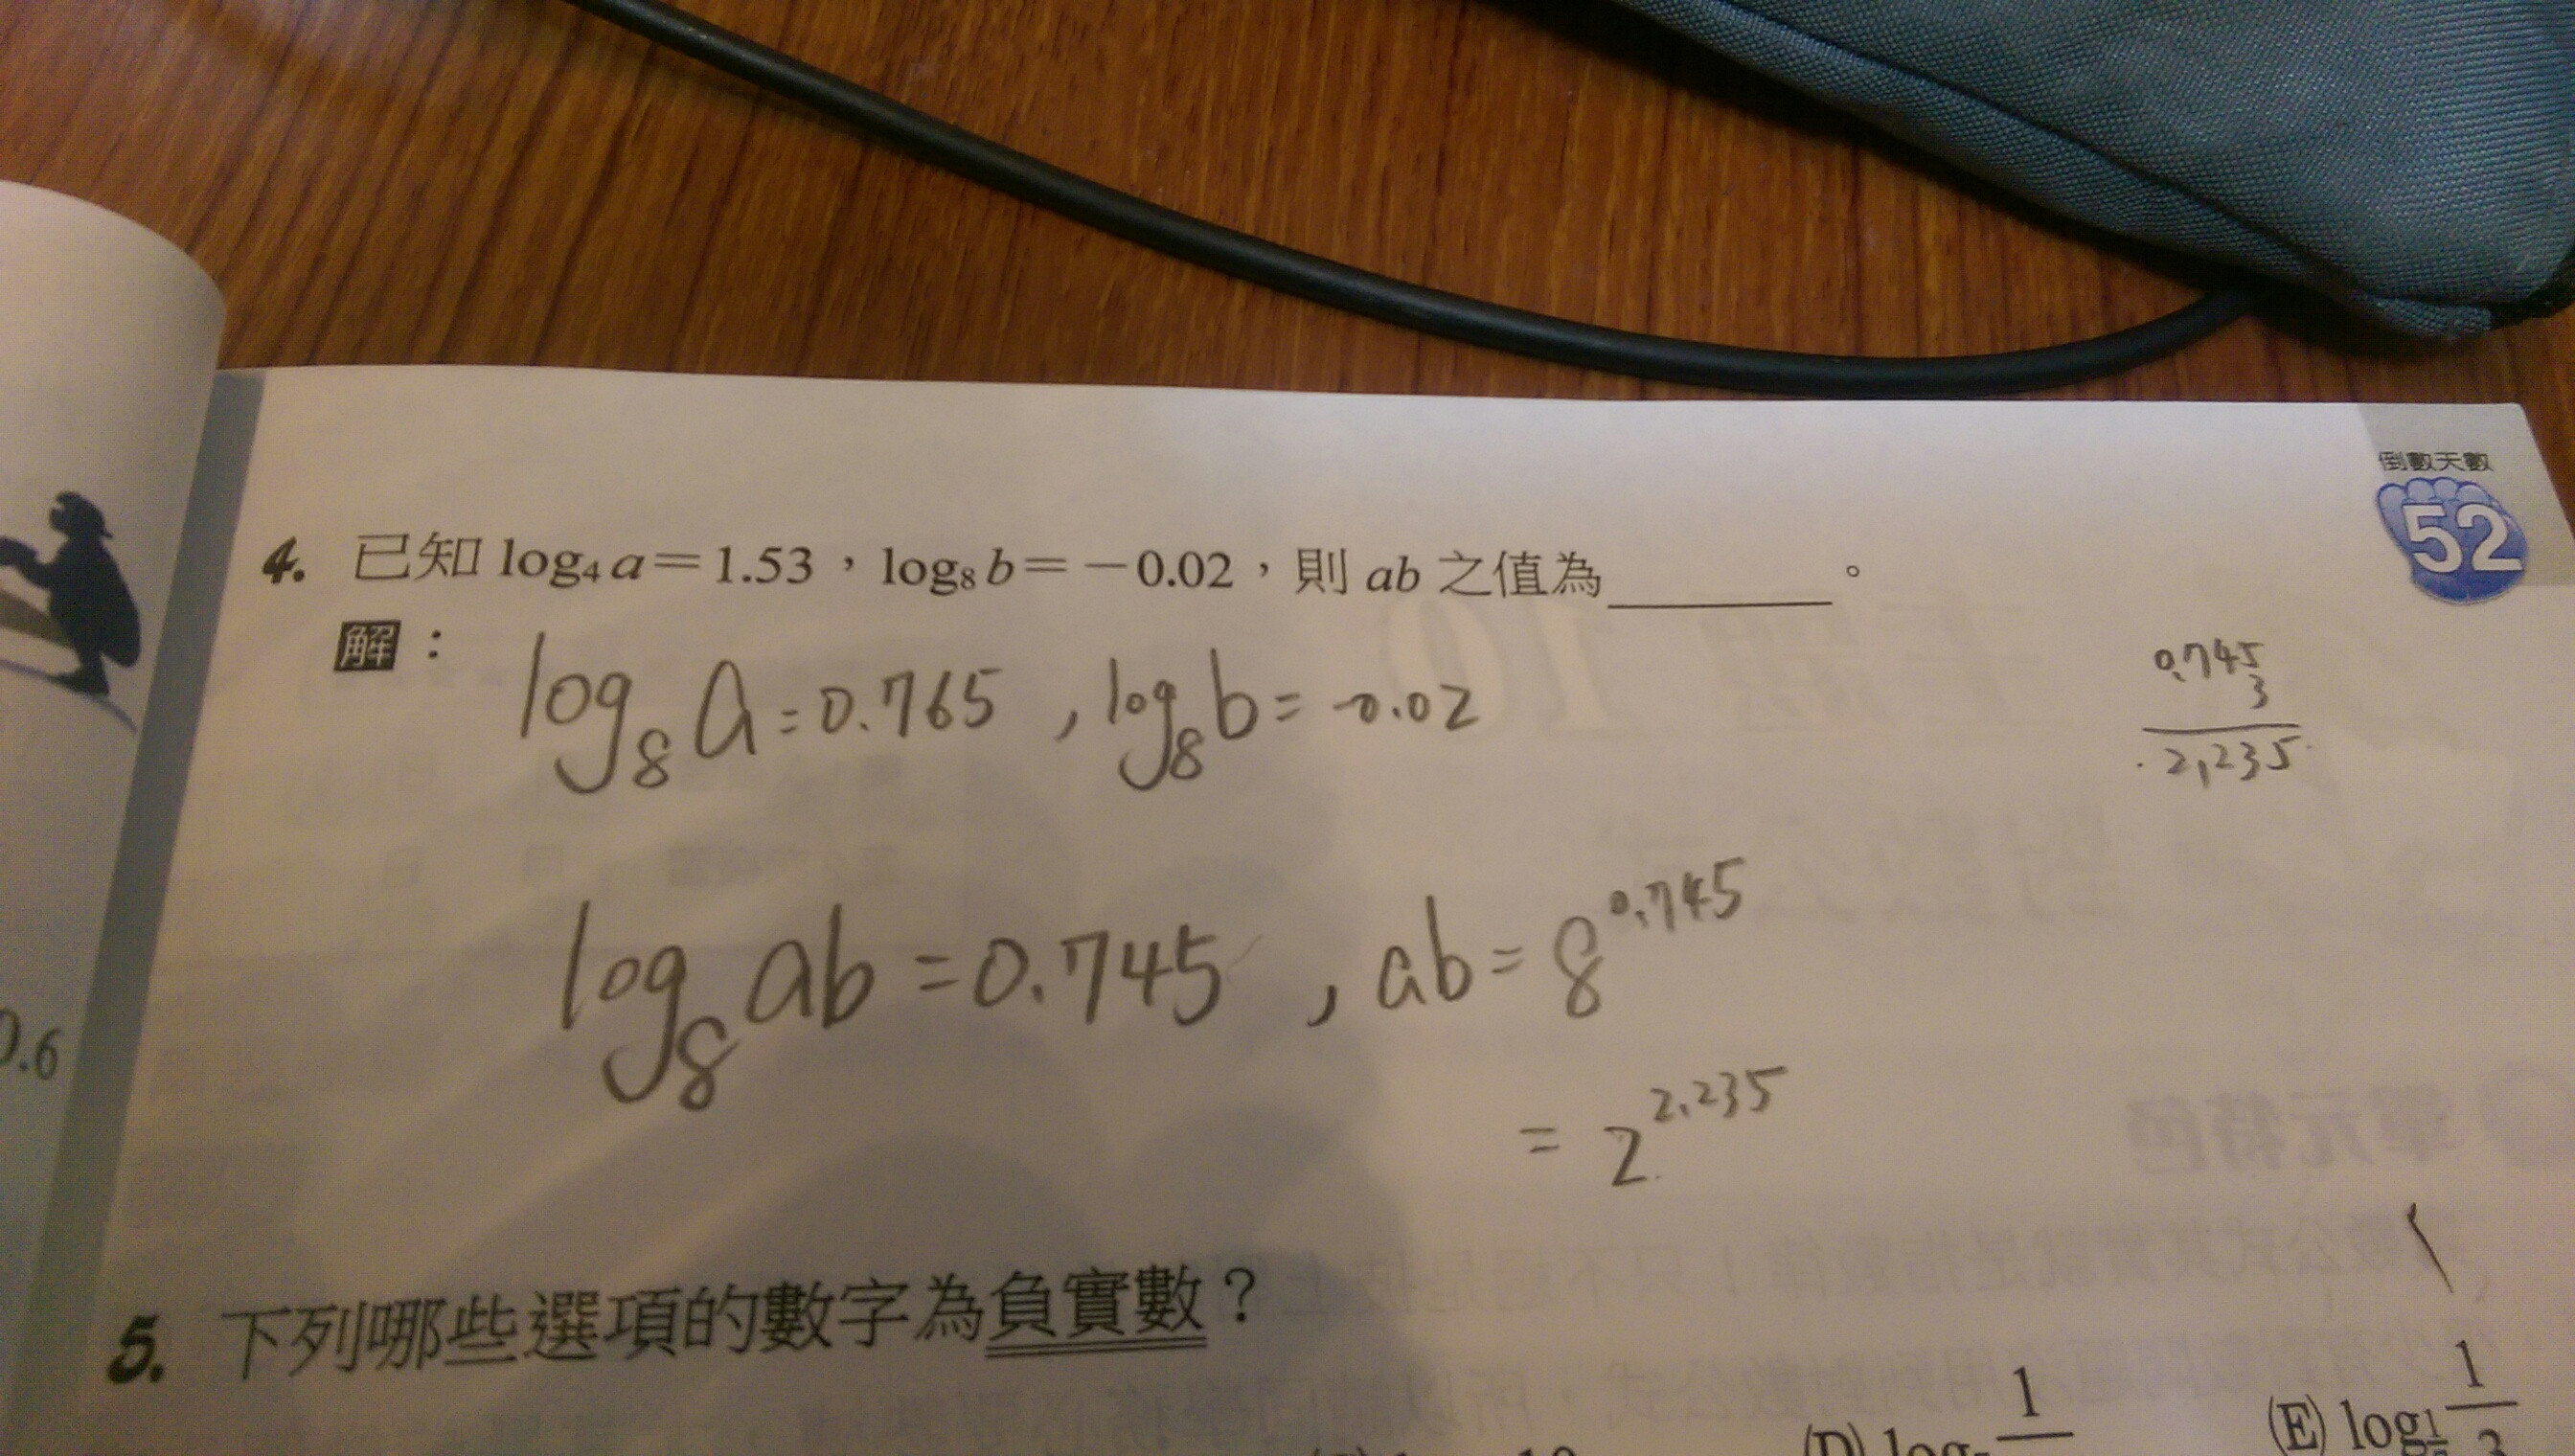 倒數天數
52
4. 已知 log₄ a＝1.53，log₈ b＝－0.02，則 ab 之值為______。
解：
log₈ a = 0.765 , log₈ b = -0.02
0.745
3
2.235
log₈ ab = 0.745 , ab = 8^0.745
= 2^2.235
0.6
5. 下列哪些選項的數字為負實數？
(D) log 1
(E) log 1